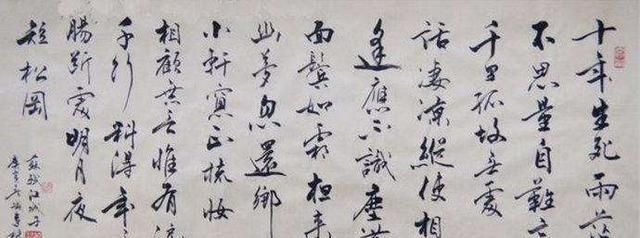 十年生死兩茫
不思量自難忘
千里孤墳無處
話凄涼縱使相
逢應不識塵滿
面鬢如霜夜來
幽夢忽還鄉
小軒窗正梳妝
相顧無言惟有淚
千行料得年年
腸斷處明月夜
短松岡
蘇軾江城子